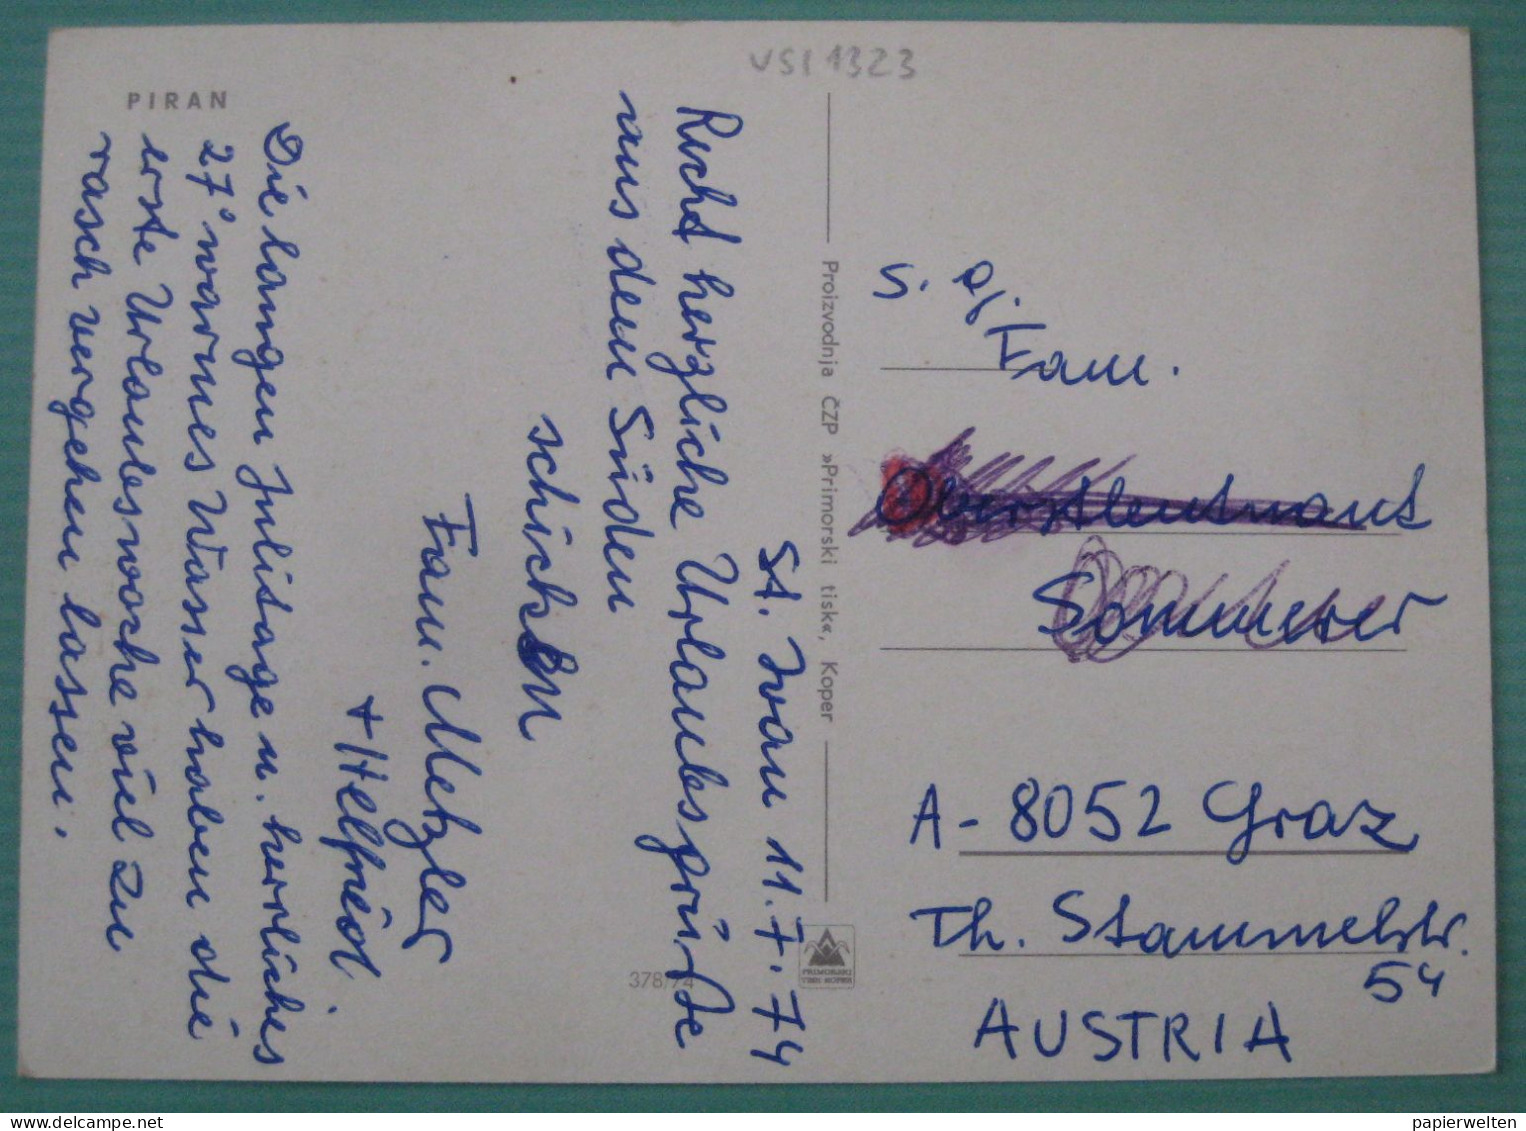 VSI 1323
PIRAN
St. Ivan 11.7.74
Recht herzliche Urlaubsgrüße
aus dem Süden
schicken
Fam. Metzler
+ Helfried.
Die langen Julitage u. herrliches
27° warmes Wasser haben die
erste Urlaubswoche viel zu
rasch vergehen lassen.
Proizvodnja ČZP »Primorski tisk«, Koper
378/74
PRIMORSKI
TISK KOPER
Fam.
Oberstleutnant
Sommerer
A-8052 Graz
Th. Stammelstr.
54
AUSTRIA
delcampe.net
papierwelten